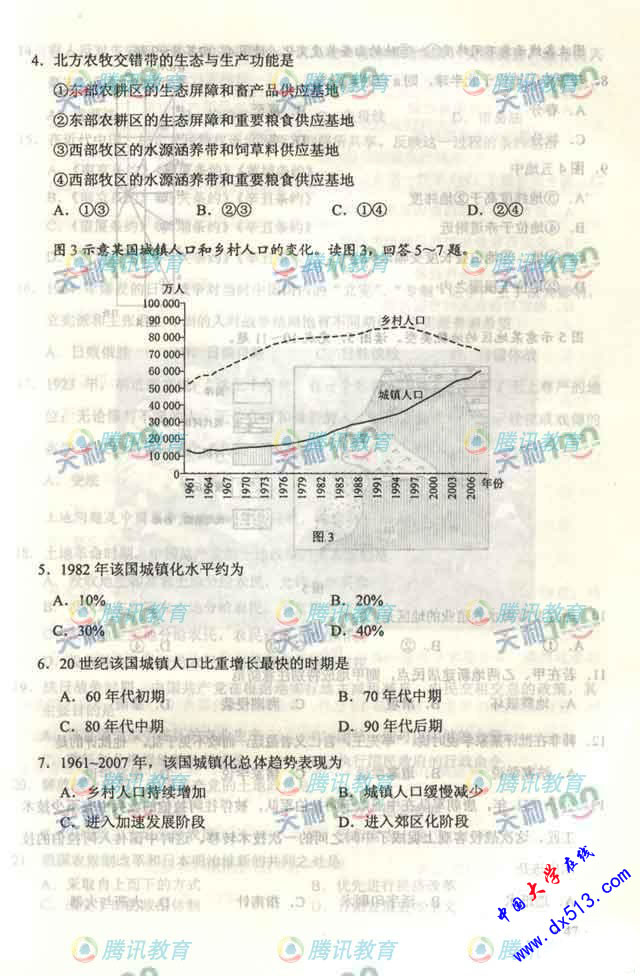 4．北方农牧交错带的生态与生产功能是
①东部农耕区的生态屏障和畜产品供应基地
②东部农耕区的生态屏障和重要粮食供应基地
③西部牧区的水源涵养带和饲草料供应基地
④西部牧区的水源涵养带和重要粮食供应基地
A．①③ B．②③ C．①④ D．②④
图3示意某国城镇人口和乡村人口的变化。读图3，回答5～7题。
万人
100 000
90 000
80 000
70 000
60 000
50 000
40 000
30 000
20 000
10 000
0
乡村人口
城镇人口
1961 1964 1967 1970 1973 1976 1979 1982 1985 1988 1991 1994 1997 2000 2003 2006 年份
图3
5．1982年该国城镇化水平约为
A．10% B．20%
C．30% D．40%
6．20世纪该国城镇人口比重增长最快的时期是
A．60年代初期 B．70年代中期
C．80年代中期 D．90年代后期
7．1961~2007年，该国城镇化总体趋势表现为
A．乡村人口持续增加 B．城镇人口缓慢减少
C．进入加速发展阶段 D．进入郊区化阶段
腾讯教育
天利100
中国大学在线
www.dx513.com